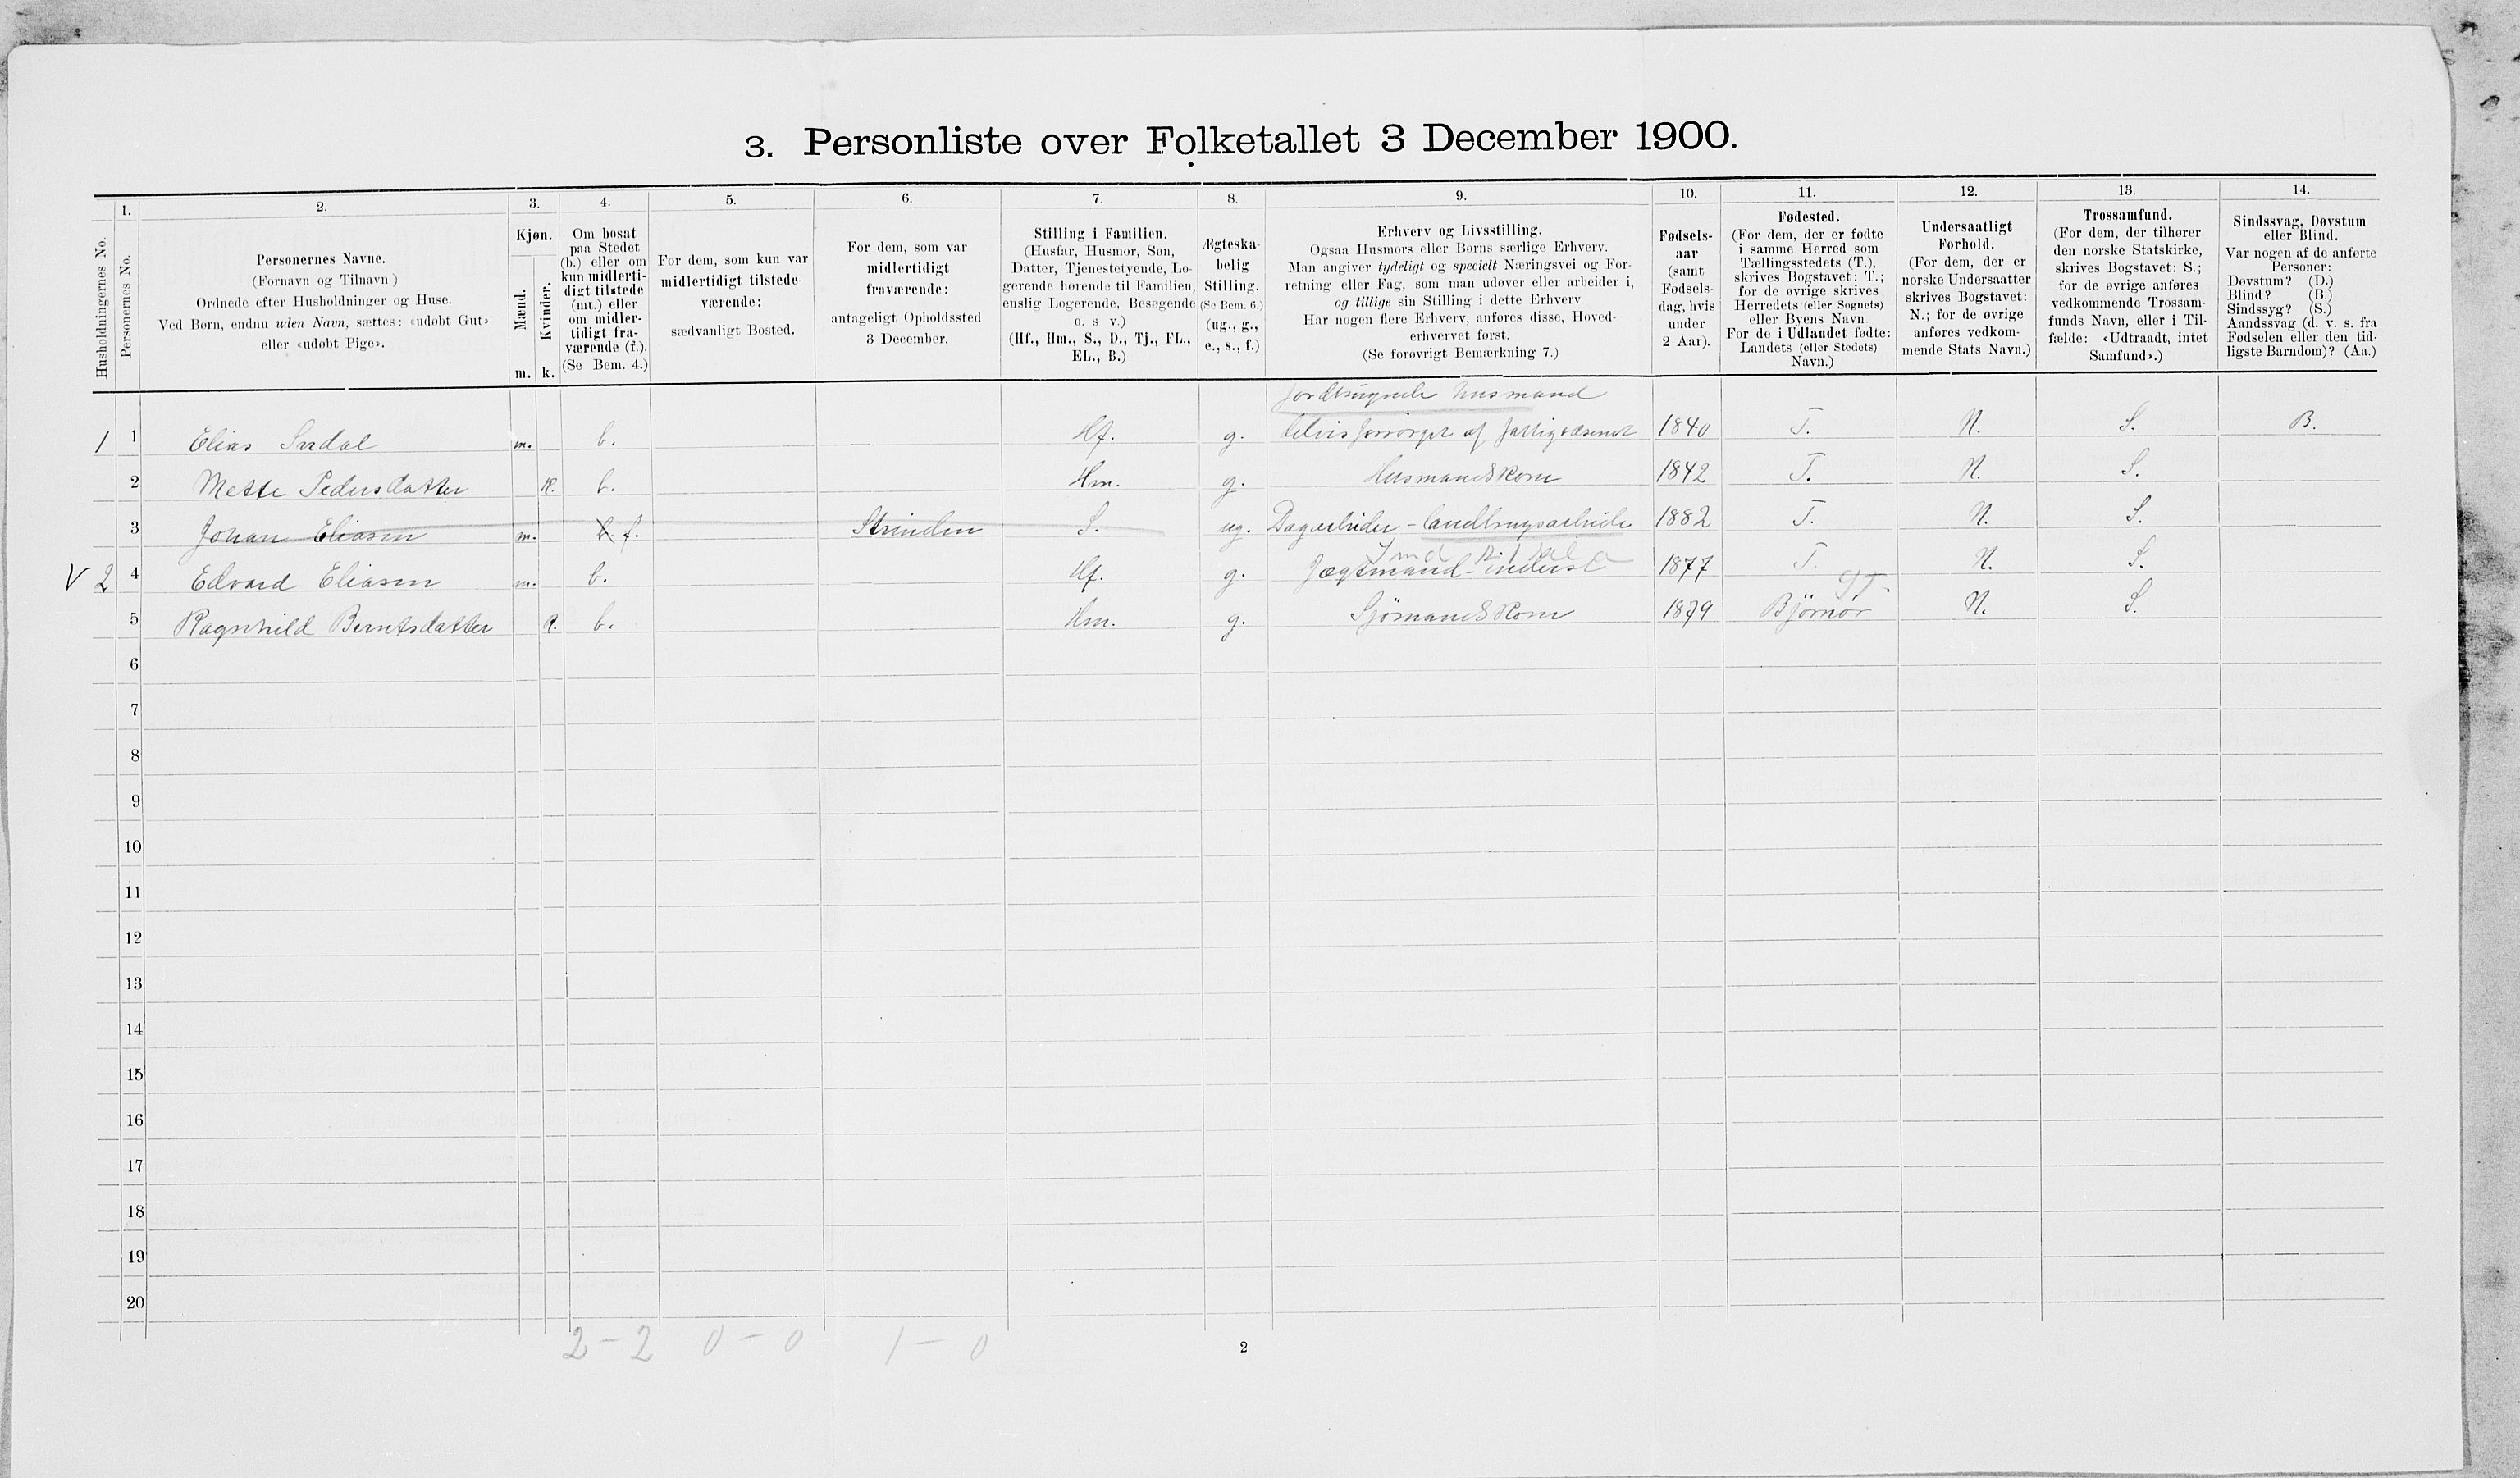 3. Personliste over Folketallet 3 December 1900.
Husholdningernes No.
1. Personernes No.
2. Personernes Navne.
(Fornavn og Tilnavn)
Ordnede efter Husholdninger og Huse.
Ved Børn, endnu uden Navn, sættes: «udøbt Gut»
eller «udøbt Pige».
3. Kjøn.
Mænd. m.
Kvinder. k.
4. Om bosat
paa Stedet
(b.) eller om
kun midlerti-
digt tilstede
(mt.) eller
om midler-
tidigt fra-
værende (f.).
(Se Bem. 4.)
5. For dem, som kun var
midlertidigt tilstede-
værende:
sædvanligt Bosted.
6. For dem, som var
midlertidigt
fraværende:
antageligt Opholdssted
3 December.
7. Stilling i Familien.
(Husfar, Husmor, Søn,
Datter, Tjenestetyende, Lo-
gerende hørende til Familien,
enslig Logerende, Besøgende
o. s v.)
(Hf., Hm., S., D., Tj., FL.,
EL., B.)
8. Ægteska-
belig
Stilling.
(Se Bem. 6.)
(ug., g.,
e., s., f.)
9. Erhverv og Livsstilling.
Ogsaa Husmors eller Børns særlige Erhverv.
Man angiver tydeligt og specielt Næringsvei og For-
retning eller Fag, som man udøver eller arbeider i,
og tillige sin Stilling i dette Erhverv.
Har nogen flere Erhverv, anføres disse, Hoved-
erhvervet først.
(Se forøvrigt Bemærkning 7.)
10. Fødsels-
aar
(samt
Fødsels-
dag, hvis
under
2 Aar).
11. Fødested.
(For dem, der er fødte
i samme Herred som
Tællingsstedets (T.),
skrives Bogstavet: T.;
for de øvrige skrives
Herredets (eller Sognets)
eller Byens Navn
For de i Udlandet fødte:
Landets (eller Stedets)
Navn.)
12. Undersaatligt
Forhold.
(For dem, der er
norske Undersaatter
skrives Bogstavet:
N.; for de øvrige
anføres vedkom-
mende Stats Navn.)
13. Trossamfund.
(For dem, der tilhører
den norske Statskirke,
skrives Bogstavet: S.;
for de øvrige anføres
vedkommende Trossam-
funds Navn, eller i Til-
fælde: «Udtraadt, intet
Samfund».)
14. Sindssvag, Døvstum
eller Blind.
Var nogen af de anførte
Personer:
Døvstum? (D.)
Blind? (B.)
Sindssyg? (S.)
Aandssvag (d. v. s. fra
Fødselen eller den tid-
ligste Barndom)? (Aa.)
jordbrugende husmand
1 1 Elias m. b. Hf. g. delvis forsørget af fattigvæsenet 1840 T. N. S. B.
2 Mette Pedersdatter k. b. Hm. g. Husmandskone 1842 T. N. S.
3 Johan Eliasen m. b. f. Strinden S. ug. Dagarbeider - landbrugsarbeide 1882 T. N. S.
V 2 4 Edvard Eliasen m. b. Hf. g. Jægtmand - inderst 1877 T. N. S.
5 Ragnhild Berntsdatter k. b. Hm. g. Sjömandskone 1879 Björnör N. S.
6
7
8
9
10
11
12
13
14
15
16
17
18
19
20
2 - 2 0 - 0 1 - 0
2